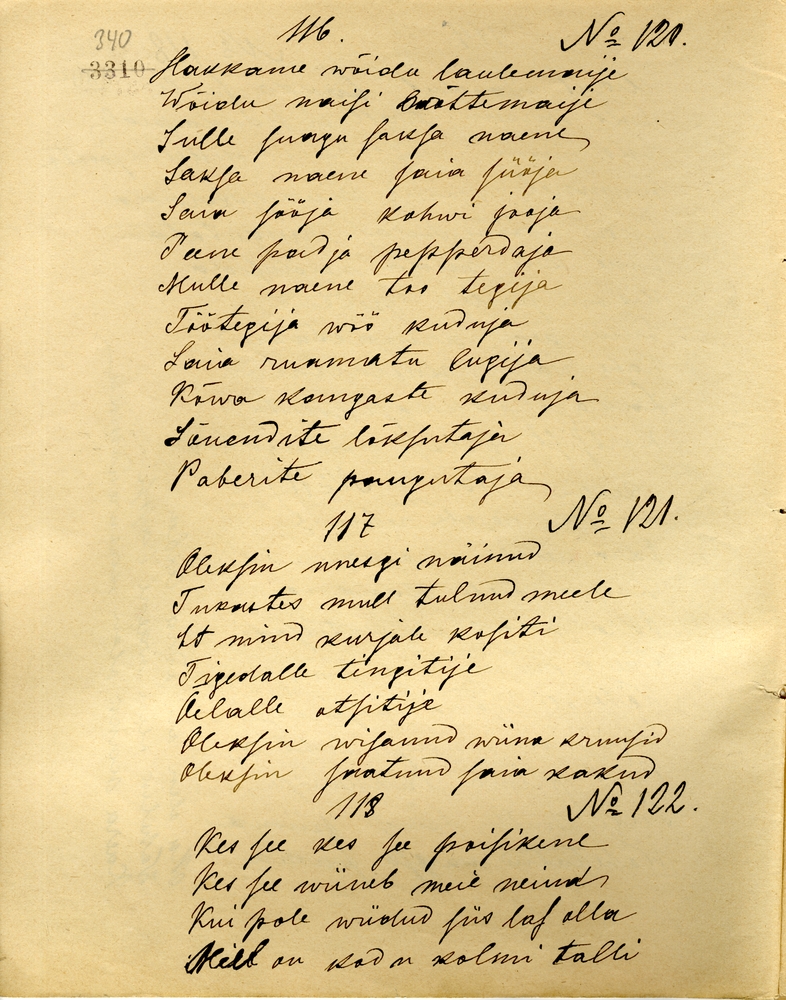 340
116. No 120.
3310
Hakkame wõidu laulemaije
Wõidu naisi wõttemaije
Sulle suagu saksa naene
Saksa naene saia sööja
Saia sööja kohwi jooja
Peene padja pepperdaja
Mulle naene töö tegija
Töötegija wöö kuduja
Laia ruamatu lugija
Kõwa kangaste kuduja
Lõuendite lõksutaja
Paberite paugutaja
117 No 121.
Oleksin unesgi näinud
Tukastes mull tulnud meele
Et mind kurjale kositi
Tigedalle tingitije
Oelalle otsitije
Oleksin wisanud wiina kruusid
Oleksin saatnud saia kakud
118 No 122.
Kes see kes see poisikene
Kes see wiineb meie neiud
Kui pole wiidud siis las olla
Meil on kodu kolmi talli